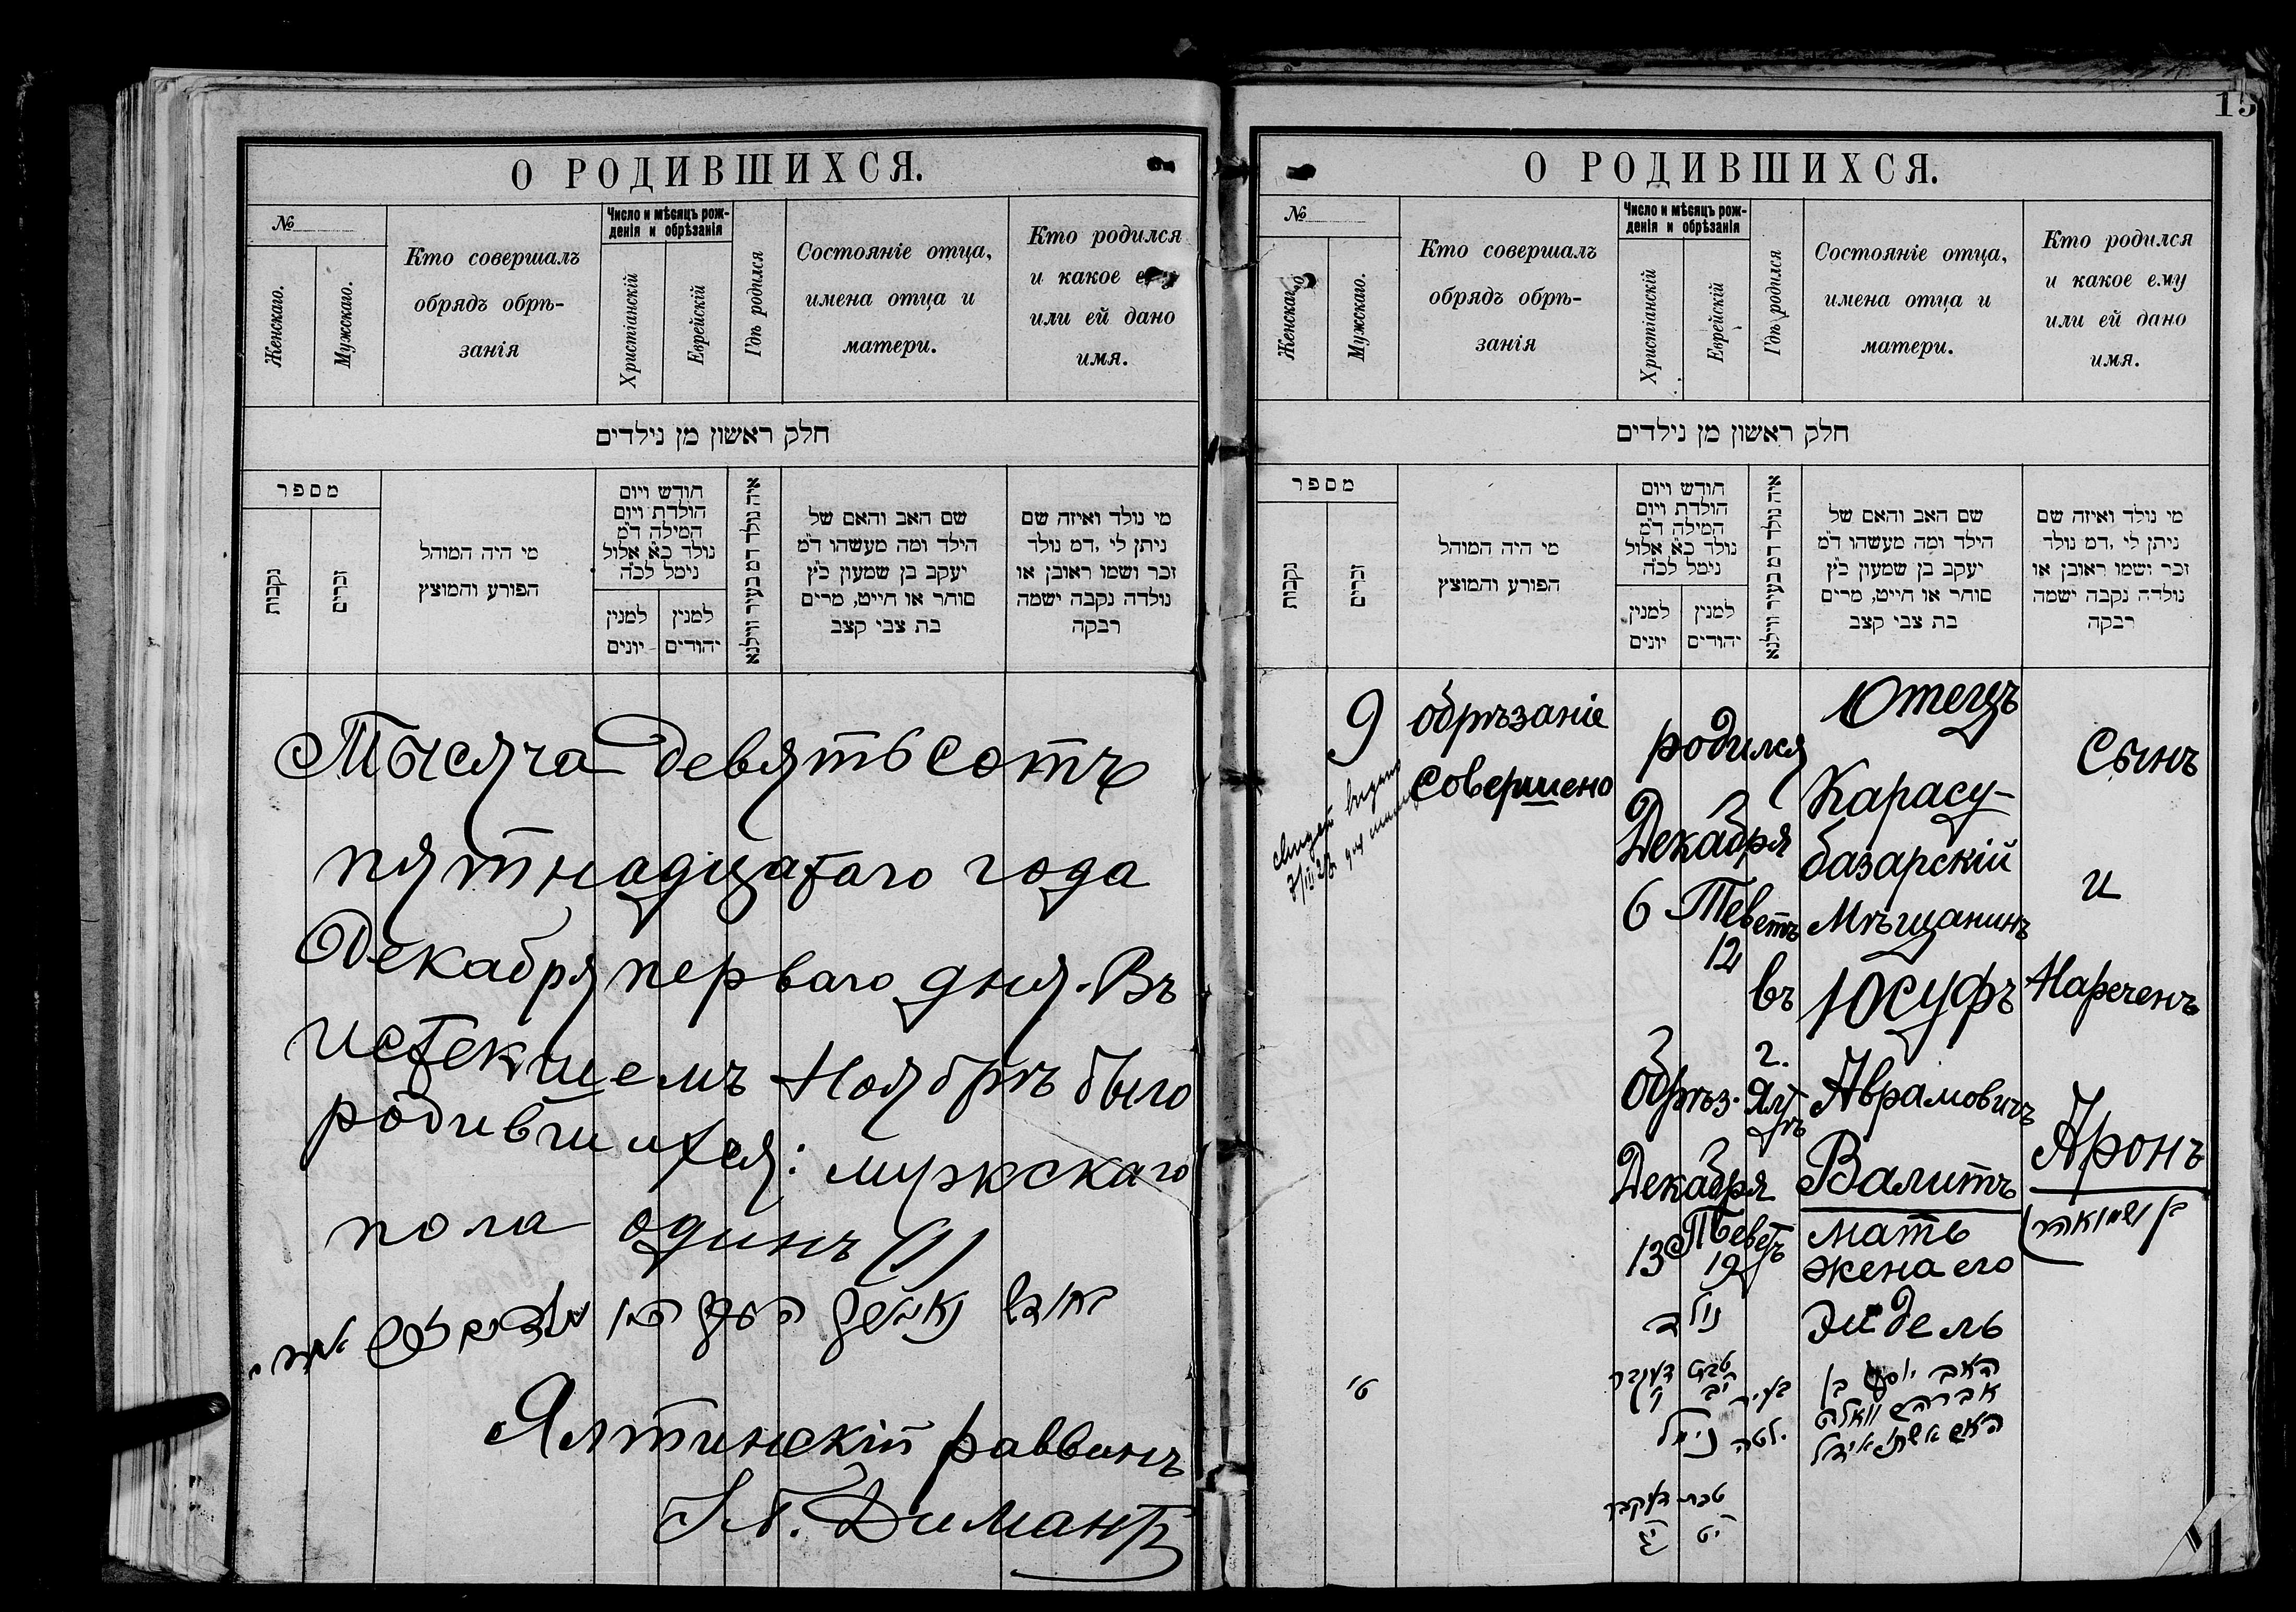 О РОДИВШИХСЯ.
№
Женскаго.
Мужскаго.
Кто совершалъ
обрядъ обрѣ-
занія
Число и мѣсяцъ рож-
денія и обрѣзанія
Христіанскій
Еврейскій
Гдѣ родился
Состояніе отца,
имена отца и
матери.
Кто родился
и какое ему
или ей дано
имя.
חלק ראשון מן נולדים
מספר
נקבות
זכרים
מי היה המוהל
הפורע והמוצץ
חודש ויום
הולדת ויום
המילה ד״מ
נולד כ״א אלול
נימל לכ״ה
למנין
יונים
למנין
יהודים
איה נולד דמ בעיר ווילנא
שם האב והאם של
הילד ומה מעשהו ד״מ
יעקב בן שמעון כ״ץ
סוחר או חייט, מרים
בת צבי קצב
מי נולד ואיזה שם
ניתן לי, דמ נולד
זכר ושמו ראובן או
נולדה נקבה ישמה
רבקה
Тысяча девятьсотъ
пятнадцатаго года
Декабря перваго дня. Въ
истекшемъ Ноябрѣ было
родившихся: мужскаго
пола одинъ (1)
Ялтинскій раввинъ
Димантъ
15
О РОДИВШИХСЯ.
№
Женскаго.
Мужскаго.
Кто совершалъ
обрядъ обрѣ-
занія
Число и мѣсяцъ рож-
денія и обрѣзанія
Христіанскій
Еврейскій
Гдѣ родился
Состояніе отца,
имена отца и
матери.
Кто родился
и какое ему
или ей дано
имя.
חלק ראשון מן נולדים
מספר
נקבות
זכרים
מי היה המוהל
הפורע והמוצץ
חודש ויום
הולדת ויום
המילה ד״מ
נולד כ״א אלול
נימל לכ״ה
למנין
יונים
למנין
יהודים
איה נולד דמ בעיר ווילנא
שם האב והאם של
הילד ומה מעשהו ד״מ
יעקב בן שמעון כ״ץ
סוחר או חייט, מרים
בת צבי קצב
מי נולד ואיזה שם
ניתן לי, דמ נולד
זכר ושמו ראובן או
נולדה נקבה ישמה
רבקה
9
обрѣзаніе
совершено
родился
Декабря
6 Теветъ
12
Обрѣз.
Декабря
13 Теветъ
19
נולד
טבת דעקבר
יב ו
נימול
טבת דעקבר
יט יג
въ
г.
Ялтѣ
בעיר
ילטה
Отецъ
Карасу-
базарскій
Мѣщанинъ
Юсуфъ
Аврамовичъ
Валитъ
мать
жена его
Эйдель
האב יוסף בן
אברהם וואליט
האם אשתו אידל
Сынъ
и
Нареченъ
Аронъ
ט׳